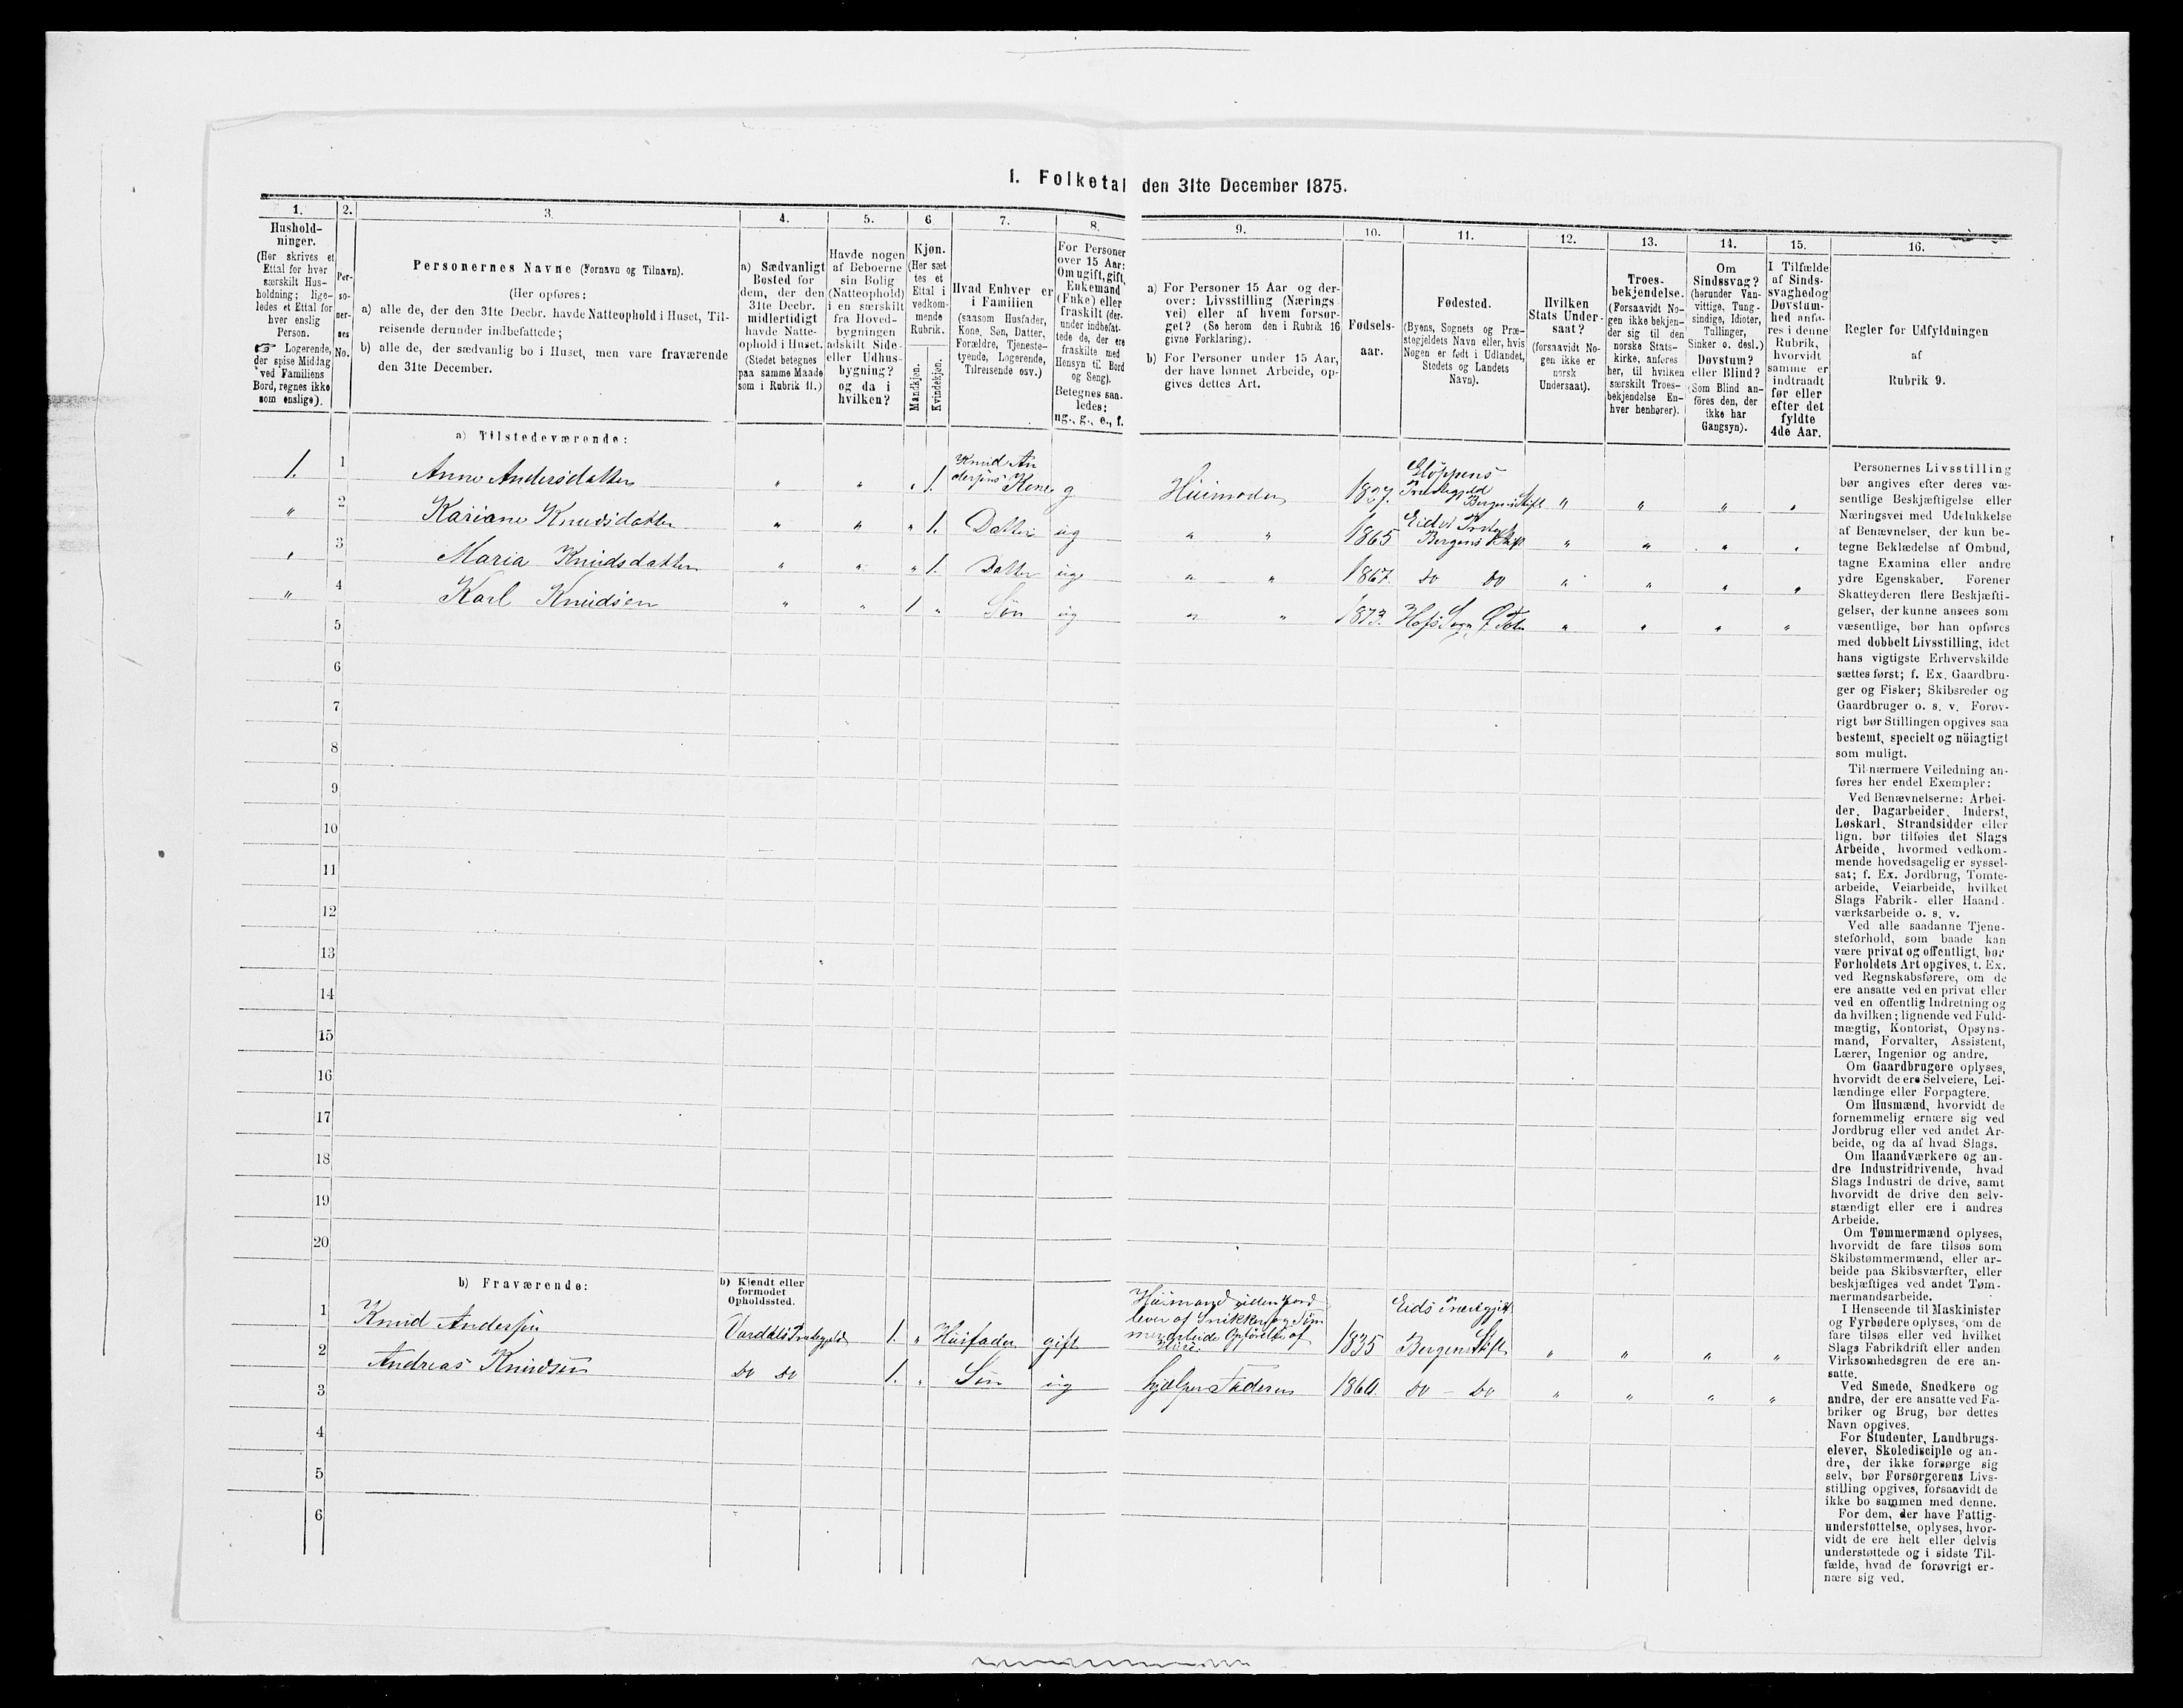 1. Folketal den 31te December 1875.
1. 2. 3. 4. 5. 6 7. 8. 9. 10. 11. 12. 13. 14. 15. 16.
Hushold-
ninger.
(Her skrives et
Ettal for hver
særskilt Hus-
holdning; lige-
ledes et Ettal for
hver enslig
Person.
☞ Logerende,
der spise Middag
ved Familiens
Bord, regnes ikke
som enslige).
Per-
so-
ner-
nes
No.
Personernes Navne (Fornavn og Tilnavn).
(Her opføres:
a) alle de, der den 31te Decbr. havde Natteophold i Huset, Til-
reisende derunder indbefattede;
b) alle de, der sædvanlig bo i Huset, men vare fraværende
den 31te December.
a) Sædvanligt
Bosted for
dem, der den
31te Decbr.
midlertidigt
havde Natte-
ophold i Huset.
(Stedet betegnes
paa samme Maade
som i Rubrik 11.)
Havde nogen
af Beboerne
sin Bolig
(Natteophold)
i en særskilt
fra Hoved-
bygningen
adskilt Side-
eller Udhus-
bygning?
og da i
hvilken?
Kjøn.
(Her sæt
tes et
Ettal i
vedkom-
mende
Rubrik.
Mandkjøn.
Kvindekjøn.
Hvad Enhver er
i Familien
(saasom Husfader,
Kone, Søn, Datter,
Forældre, Tjeneste-
tyende, Logerende,
Tilreisende osv.)
For Personer
over 15 Aar:
Om ugift, gift,
Enkemand
(Enke) eller
fraskilt (der-
under indbefat-
tede de, der ere
fraskilte med
Hensyn til Bord
og Seng).
Betegnes saa-
ledes:
ug., g., e., f.
a) For Personer 15 Aar og der-
over: Livsstilling (Nærings
vei) eller af hvem forsor-
get? (Se herom den i Rubrik 16
givne Forklaring).
b) For Personer under 15 Aar,
der have lønnet Arbeide, op-
gives dettes Art.
Fødsels-
aar.
Fødested.
(Byens, Sognets og Præ-
stegjeldets Navn eller, hvis
Nogen er født i Udlandet,
Stedets og Landets
Navn).
Hvilken
Stats Under-
saat?
(forsaavidt No-
gen ikke er
norsk
Undersaat).
Troes-
bekjendelse.
(Forsaavidt No-
gen ikke bekjen-
der sig til den
norske Stats-
kirke, anføres
her, til hvilken
særskilt Troes-
bekjendelse En-
hver henhører).
Om
Sindssvag?
(herunder Van-
vittige, Tung-
sindige, Idioter,
Tullinger,
Sinker o. desl.)
Døvstum?
eller Blind?
(Som Blind an-
føres den, der
ikke har
Gangsyn).
I Tilfælde
af Sinds-
svaghed og
Døvstum-
hed anfø-
res i denne
Rubrik,
hvorvidt
samme er
indtraadt
før eller
efter det
fyldte
4de Aar.
Regler for Udfyldningen
af
Rubrik 9.
a) Tilstedeværende:
1. 1 Anne Andersdatter " " " 1. Knud An
dersens Kone g Huimoder 1827. Gløppens
Præstegjeld
Bergens Stift " " " "
" 2 Kariane Knudsdatter " " " 1. Datter ug " " 1865 Eids Prstgj
Bergens Stift " " " "
" 3 Maria Knudsdatter " " " 1. Datter ug " " 1867. do do " " " "
" 4 Karl Knudsen " " 1 " Søn ug " " 1873. Hofs Sogn Ø Toten " " " "
5
6
7
8
9
10
11
12
13
14
15
16
17
18
19
20
b) Fraværende:
b) Kjendt eller
formodet
Opholdssted.
1 Knud Andersen Vardals Prstegjeld 1. " Huusfader gift Huusmand uden Jord
lever af Snikker og Töm
merarbeide Opförelse af
Huse 1835 Eids Præstegjeld
Bergens Stift " " " "
2 Andreas Knudsen do do 1. " Søn ug hjælper Faderen 1860. do - do " " " "
3
4
5
6
Personernes Livsstilling
bør angives efter deres væ-
sentlige Beskjæftigelse eller
Næringsvei med Udelukkelse
af Benævnelser, der kun be-
tegne Beklædelse af Ombud,
tagne Examina eller andre
ydre Egenskaber. Forener
Skatteyderen flere Beskjæfti-
gelser, der kunne ansees som
væsentlige, bør han opføres
med dobbelt Livsstilling, idet
hans vigtigste Erhvervskilde
sættes først; f. Ex. Gaardbru-
ger og Fisker; Skibsreder og
Gaardbruger o. s. v. Forøv-
rigt bør Stillingen opgives saa
bestemt, specielt og nöiagtigt
som muligt.
Til nærmere Veiledning an-
føres her endel Exempler:
Ved Benævnelserne: Arbei-
der, Dagarbeider, Inderst,
Løskarl, Strandsidder eller
lign. bør tilføies det Slags
Arbeide, hvormed vedkom-
mende hovedsagelig er syssel-
sat; f. Ex. Jordbrug, Tomte-
arbeide, Veiarbeide, hvilket
Slags Fabrik- eller Haand-
værksarbeide o. s. v.
Ved alle saadanne Tjene-
steforhold, som baade kan
være privat og offentligt, bør
Forholdets Art opgives, t. Ex.
ved Regnskabsførere, om de
ere ansatte ved en privat eller
ved en offentlig Indretning og
da hvilken; lignende ved Fuld-
mægtig, Kontorist, Opsyns-
mand, Forvalter, Assistent,
Lærer, Ingeniør og andre.
Om Gaardbrugere oplyses,
hvorvidt de ere Selveiere, Lei-
lændinge eller Forpagtere.
Om Husmænd, hvorvidt de
fornemmelig ernære sig ved
Jordbrug eller ved andet Ar-
beide, og da af hvad Slags.
Om Haandværkere og an-
dre Industridrivende, hvad
Slags Industri de drive, samt
hvorvidt de drive den selv-
stændigt eller ere i andres
Arbeide.
Om Tømmermænd oplyses,
hvorvidt de fare tilsøs som
Skibstømmermænd, eller ar-
beide paa Skibsværfter, eller
beskjæftiges ved andet Tøm-
mermandsarbeide.
I Henseende til Maskinister
og Fyrbødere oplyses, om de
fare tilsøs eller ved hvilket
Slags Fabrikdrift eller anden
Virksomhedsgren de ere an-
satte.
Ved Smede, Snedkere og
andre, der ere ansatte ved Fa-
briker og Brug, bør dettes
Navn opgives.
For Studenter, Landbrugs-
elever, Skoledisciple og an-
dre, der ikke forsørge sig
selv, bør Forsørgerens Livs-
stilling opgives, forsaavidt de
ikke bo sammen med denne.
For dem, der have Fattig-
understøttelse, oplyses, hvor-
vidt de ere helt eller delvis
understøttede og i sidste Til-
fælde, hvad de forøvrigt er-
nære sig ved.